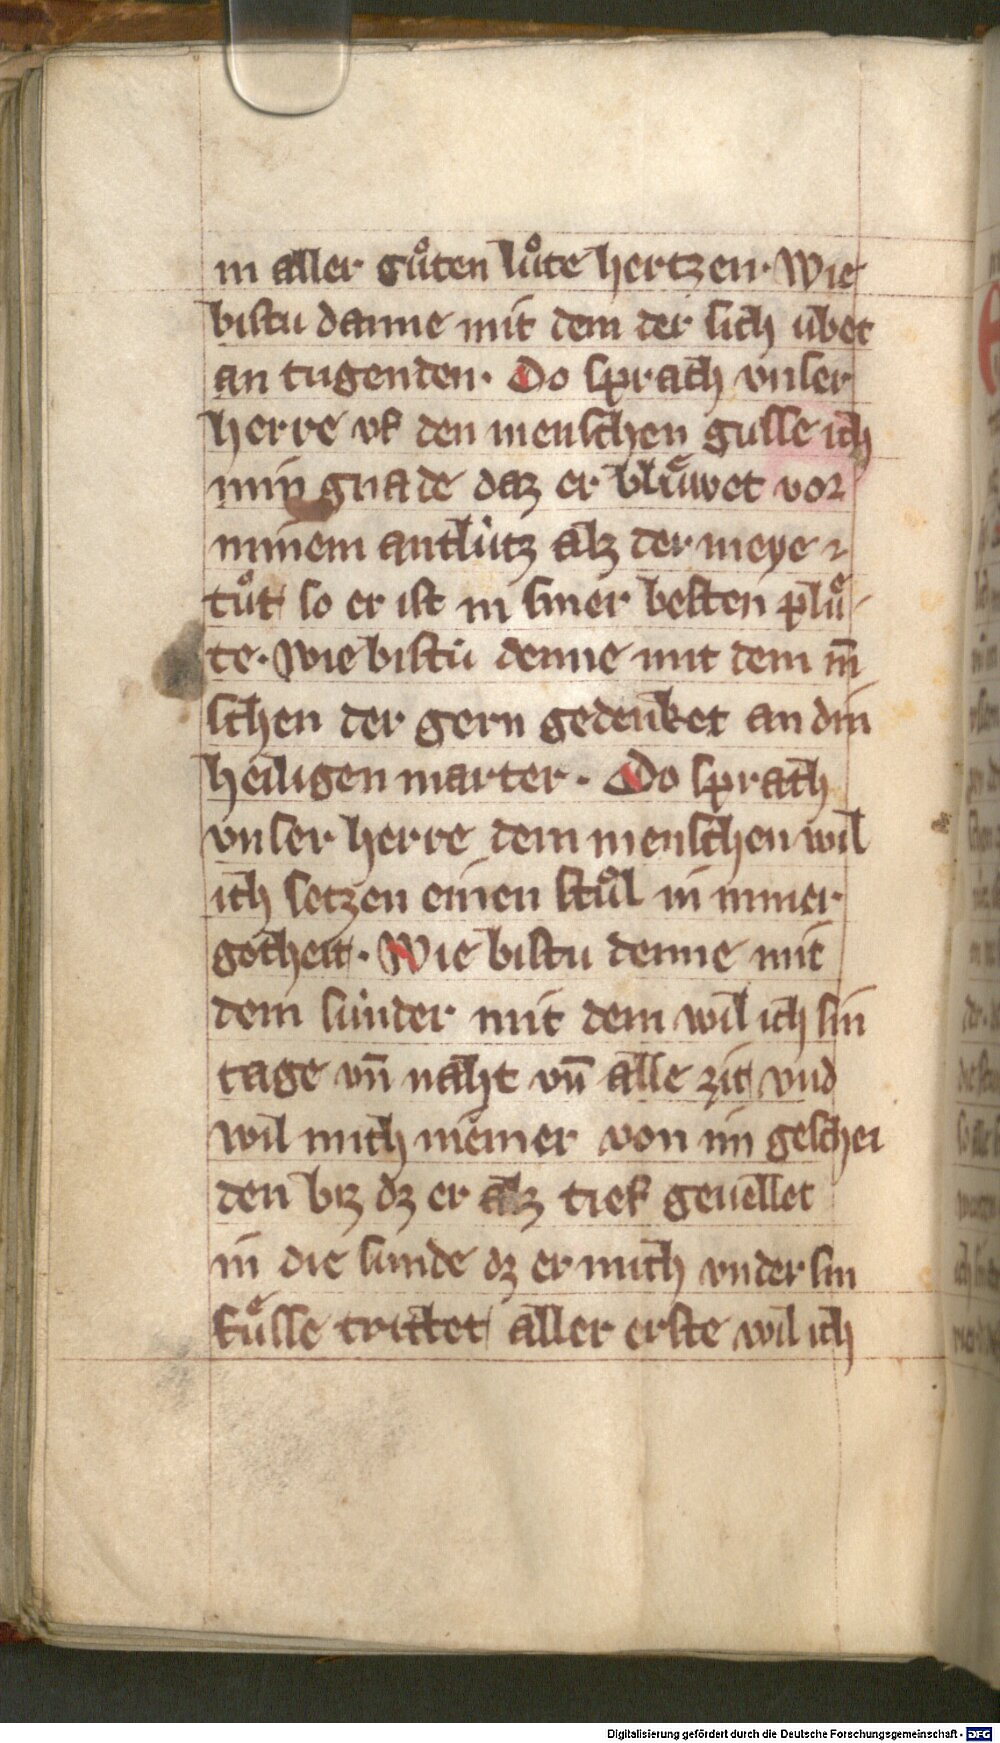 in aller guͦten luͦte hertzen · Wie
bistu danne mit dem der sich uͤbet
an tugenden · Do sprach vnser
herre vf den menschen gusse ich
min gnade daz er bluͤwet vor
minem antlútz alz der meye
tuͦt so er ist in siner besten pluͤ
te · Wie bistu denne mit dem m̄
schen der gern gedenket an din
heiligen marter · Do sprach
vnser herre dem menschen wil
ich setzen einen stuͦl in miner
gotheit · Wie bistu denne mit
dem súnder mit dem wil ich sin
tage vn̄ naht vn̄ alle zit vnd
wil mich niemer von im geschei
den biz dz er alz tief geuellet
in die sunde dz er mich vnder sin
fuͤsse trittet aller erste wil ich
Digitalisierung gefördert durch die Deutsche Forschungsgemeinschaft - DFG